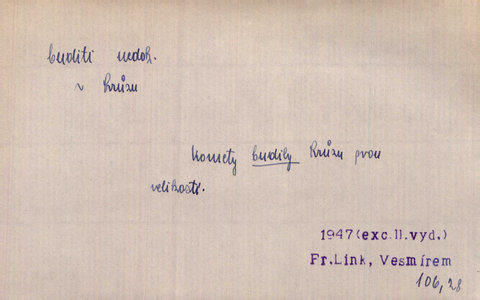 buditi nedok.
v hrůzu
Komety budily hrůzu svou
velikostí.
1947(exc.II.vyd.)
Fr.Link, Vesmírem
106,28